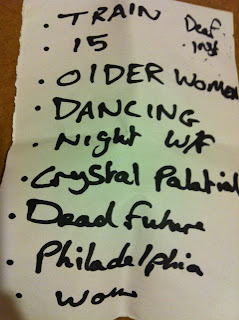 · TRAIN
Deaf
· 15
· OlDER WOMEN
· DANCING
· Night W/F
· Crystal Palatial
· Dead future
· Philadelphia